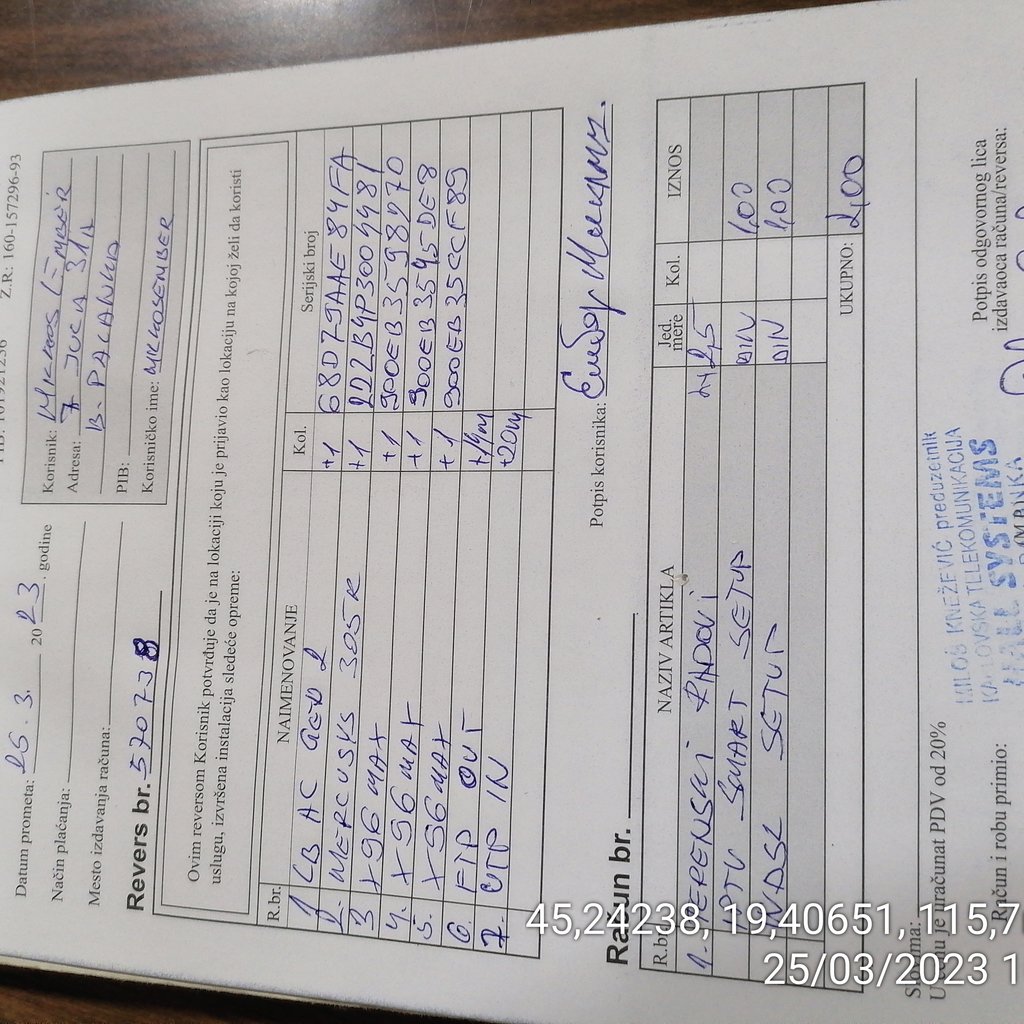 Z.R: 160-157296-93
Datum prometa: 25. 3. 2023. godine
Način plaćanja:
Mesto izdavanja računa:
Revers br. 570738
Korisnik:
Adresa: 7 JULA 31A
B. PALANKA
PIB:
Korisničko ime: MIKLOSEMBER
Ovim reversom Korisnik potvrđuje da je na lokaciji koju je prijavio kao lokaciju na kojoj želi da koristi
uslugu, izvršena instalacija sledeće opreme:
R.br. NAIMENOVANJE Kol. Serijski broj
1 LB AC GEN 2 +1 68D79AAE84FA
2. MERCUSYS 305R +1 222B4P3004481
3 X96 MAX +1 900EB3598D70
4. X96 MAX +1 900EB3545DE8
5. X96 MAX +1 900EB35CCF89
6. FTP OUT +14m
7. UTP IN +20m
Potpis korisnika:
Račun br.
R.br. NAZIV ARTIKLA Jed. mere Kol. IZNOS
1. TERENSKI RADOVI
IPTV SMART SETUP DIN 1,00
INDSL SETUP DIN 1,00
UKUPNO: 2,00
MILOŠ KNEŽEVIĆ preduzetnik
KABLOVSKA TELEKOMUNIKACIJA
SYSTEMS
Potpis odgovornog lica
izdavaoca računa/reversa:
je uračunat PDV od 20%
Račun i robu primio:
45,24238, 19,40651, 115,7
25/03/2023 1